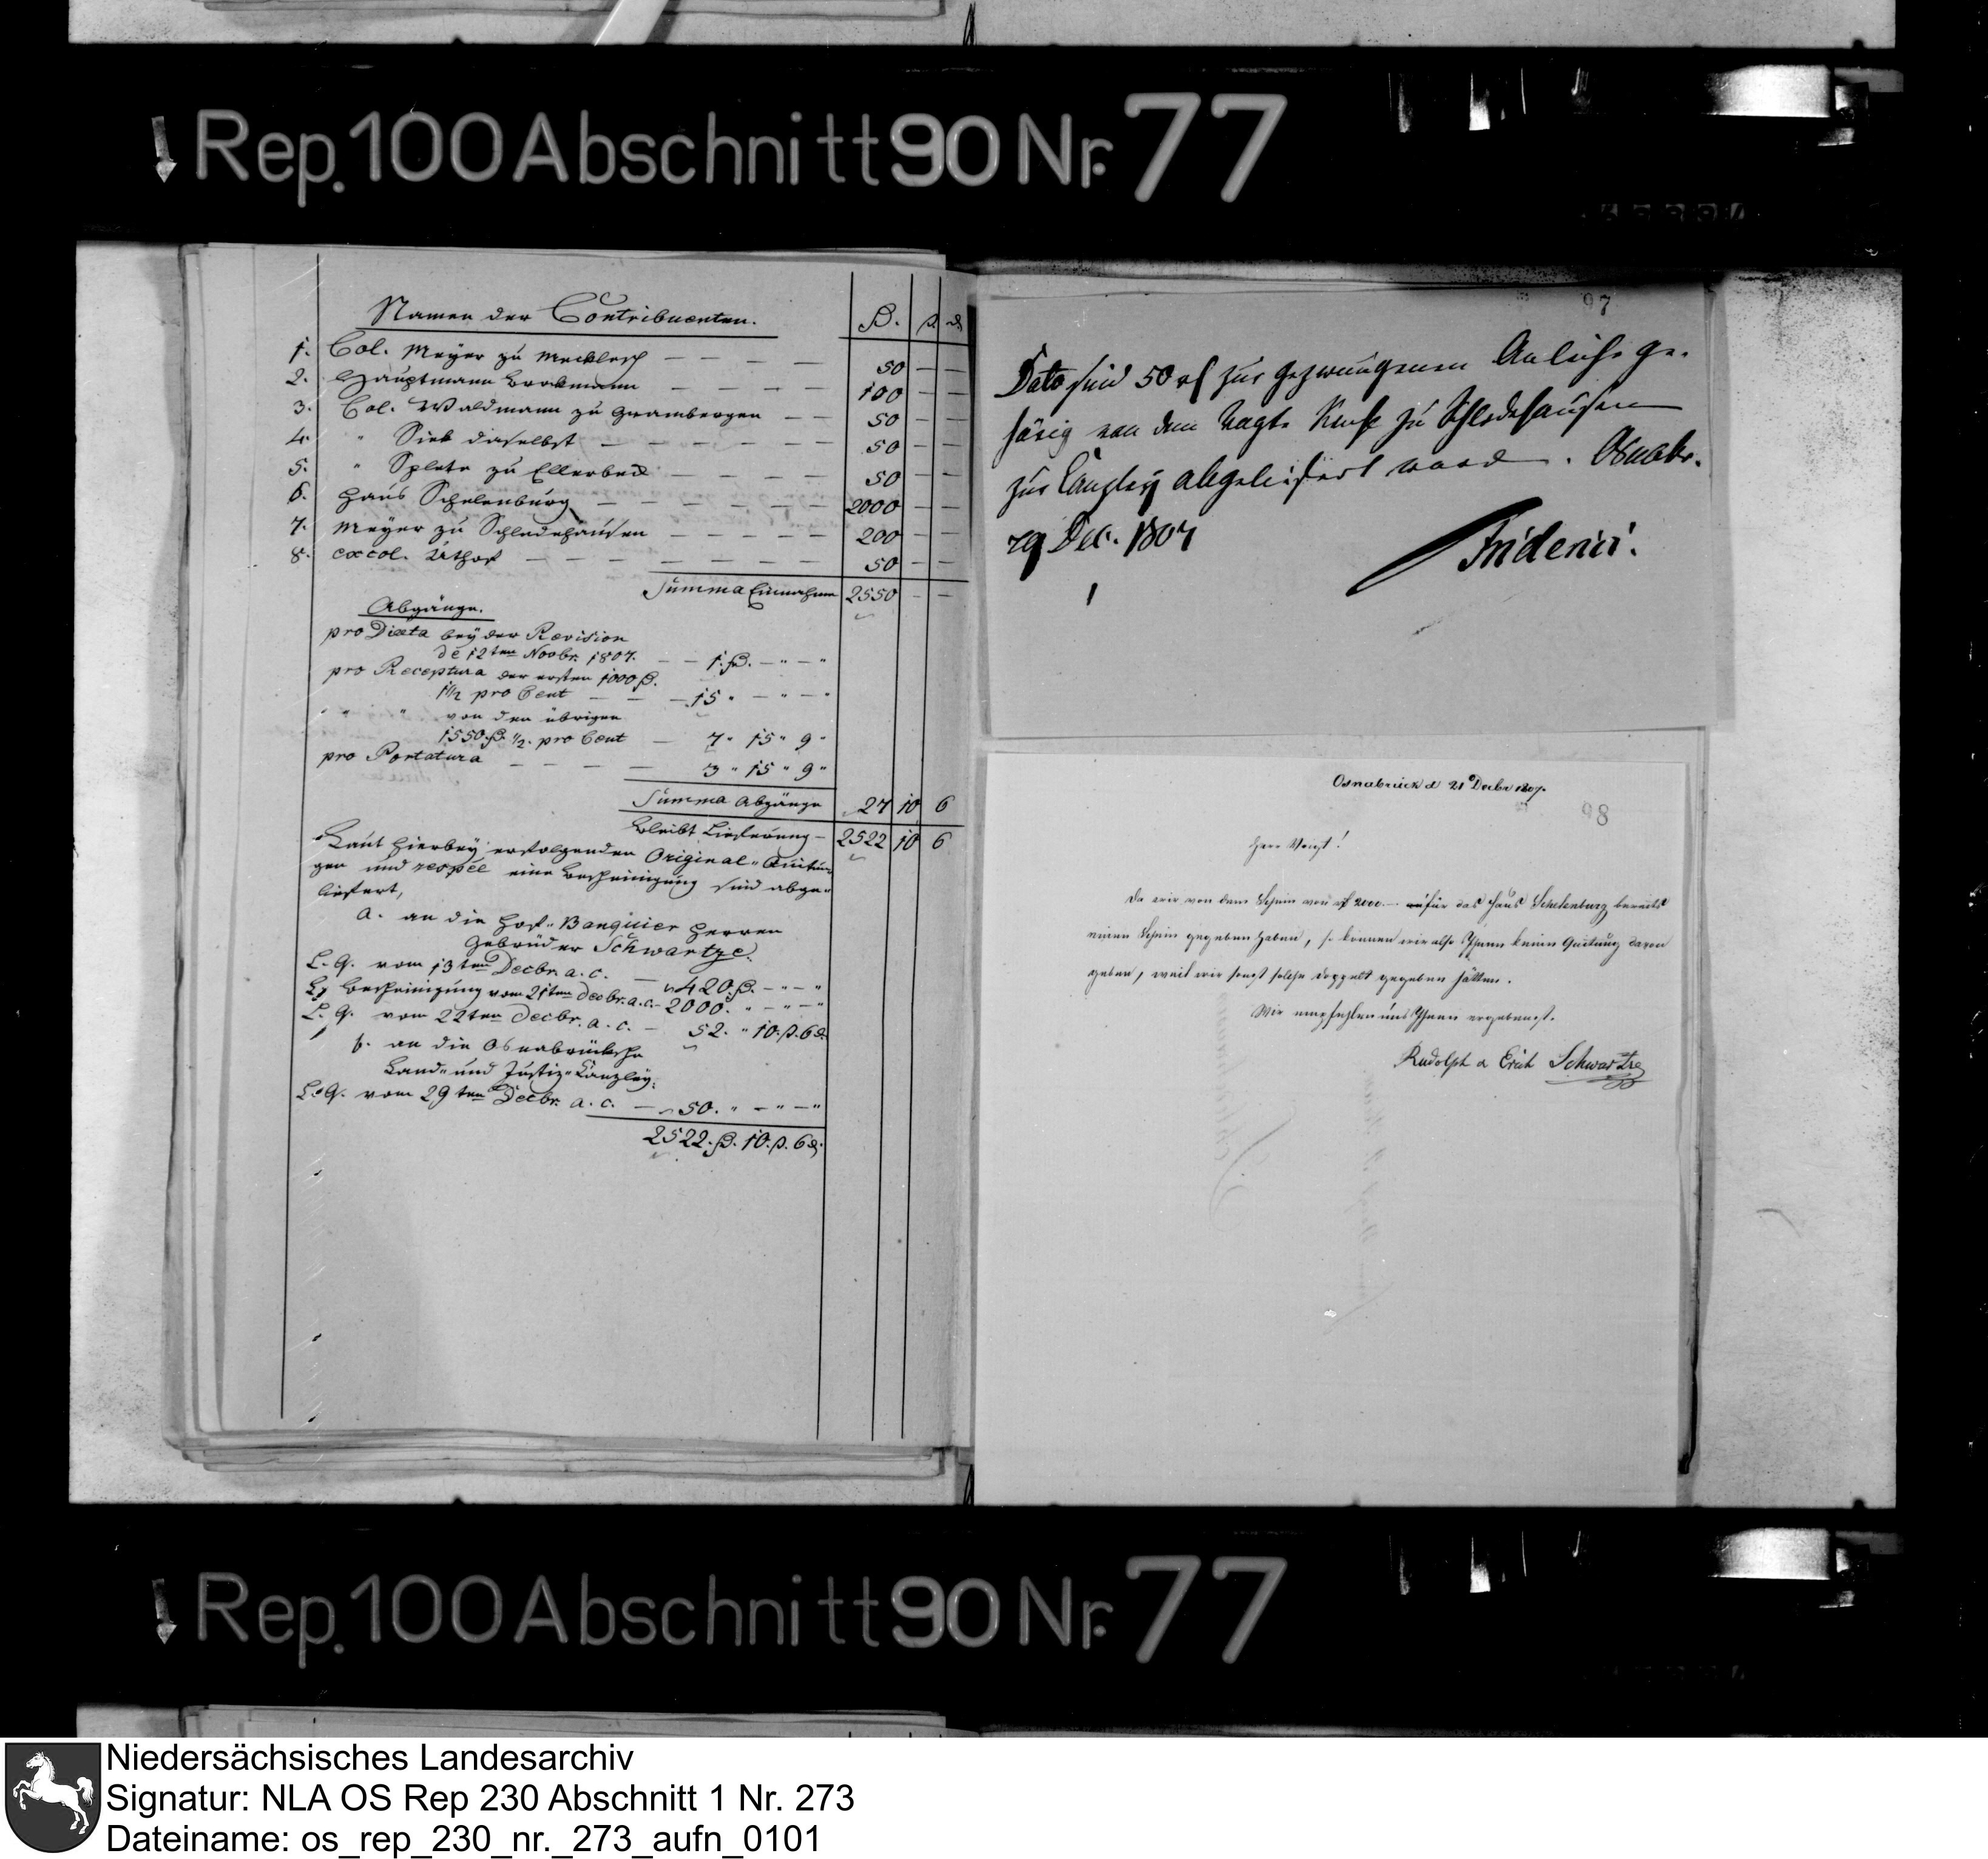 Rep. 100 Abschnitt 90 Nr. 77
Namen der Contribuenten.
1. Col. Meyer zu Mecklesch — — — — 50 — —
2. Hauptmann Brockmann — — — — 100 — —
3. Col. Waldmann zu Grambergen — — 50 — —
4. " Sieb daselbst — — — — — — 50 — —
5. " Splete zu Ellerbeck — — — — 50 — —
6. Haus Schelenburg — — — — — — 2000 — —
7. Meyer zu Schledehausen — — — — — 200 — —
8. excol. Uthof — — — — — — — 50 — —
Summa Einnahme 2550 — —
Abgänge.
pro Diaeta bey der Revision
de 12ten Novbr. 1807. — — 1. — " — "
pro Receptura der ersten 1000
1½ pro Cent — — — 15 " — " — "
" " " von den übrigen
1550 ½ pro Cent — 7 " 15 " 9 "
pro Portatura — — — — 3 " 15 " 9 "
Summa Abgänge 27 10 6
bleibt Lieferung — 2522 10 6
Laut hierbey erfolgenden Original-Quitun-
gen und respée eine Bescheinigung sind abge-
liefert,
a. an die Hof-Banquier Herren
Gebrüder Schwartze.
L. Q. vom 13ten Decbr. a. c. — 420 — " — "
Bescheinigung vom 21ten Decbr. a. c. — 2000. " — " — "
L. Q. vom 22ten Decbr. a. c. — 52. " 10. 6
b. an die Osnabrücksche
Land- und Justiz-Canzley.
L. Q. vom 29ten Decbr. a. c. — 50. " — " — "
2522. 10. 6
97
Dato sind 50 zur gezwungenen Anleihe ge-
hörig von dem Vagte zu Schledehausen
zur Canzley abgeliefert word. Osnabr.
29 Dec. 1807
Friderici.
Osnabrück d 21 Decbr 1807.
98
Herr Voigt!
Da wir von dem Schein von 2000.— für das Haus Schelenburg bereits
einen Schein gegeben haben, so können wir also Ihnen keine Quitung davon
geben, weil wir sonst solche doppelt gegeben hätten.
Wir empfehlen uns Ihnen ergebenst.
Rudolph & Erich Schwartze
Rep. 100 Abschnitt 90 Nr. 77
Niedersächsisches Landesarchiv
Signatur: NLA OS Rep 230 Abschnitt 1 Nr. 273
Dateiname: os_rep_230_nr._273_aufn_0101